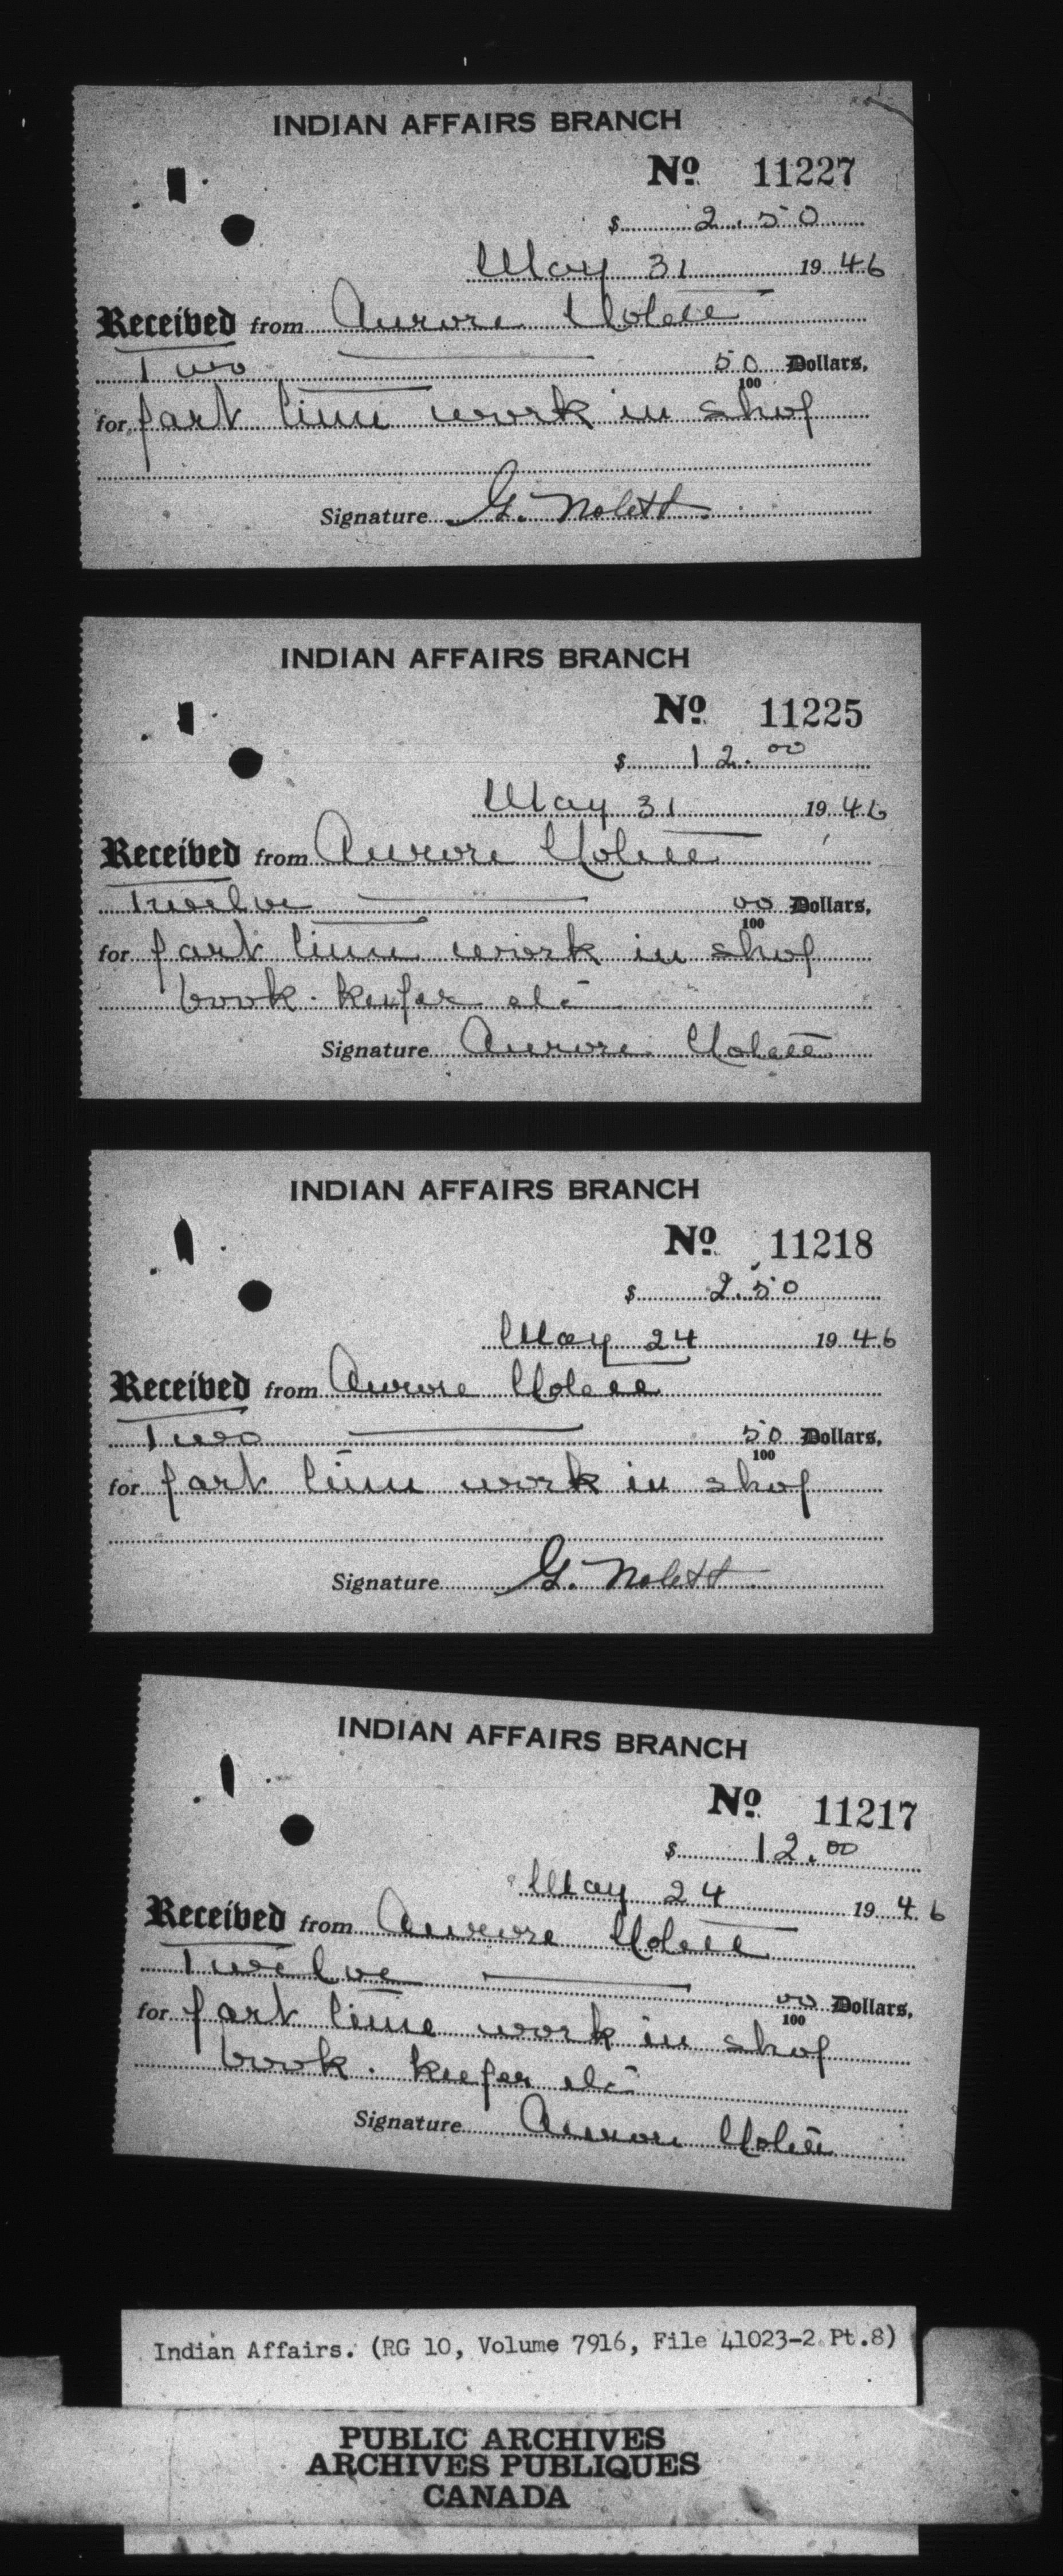 INDIAN AFFAIRS BRANCH
Nº 11227
$ 2.50
May 31 1946
Received from Aurore Nolett
Two 50/100 Dollars,
for part time work in shop
Signature G. Nolett
INDIAN AFFAIRS BRANCH
Nº 11225
$ 12.00
May 31 1946
Received from Aurore Nolett
Twelve 00/100 Dollars,
for part time work in shop
book-keeper etc
Signature Aurore Nolett
INDIAN AFFAIRS BRANCH
Nº 11218
$ 2.50
May 24 1946
Received from Aurore Nolett
Two 50/100 Dollars,
for part time work in shop
Signature G. Nolett
INDIAN AFFAIRS BRANCH
Nº 11217
$ 12.00
May 24 1946
Received from Aurore Nolett
Twelve 00/100 Dollars,
for part time work in shop
book-keeper etc
Signature Aurore Nolett
Indian Affairs. (RG 10, Volume 7916, File 41023-2 Pt.8)
PUBLIC ARCHIVES
ARCHIVES PUBLIQUES
CANADA